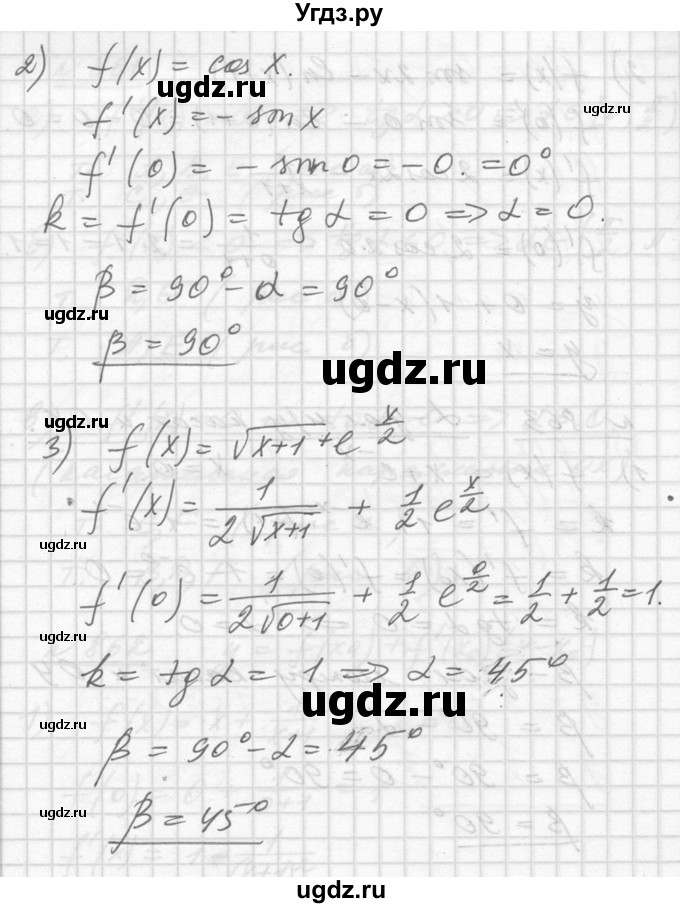 Угдз.ру
2) f(x) = cos x.
ugdz.ru
ugdz.ru
f'(x) = - sin x
f'(0) = - sin 0 = -0. = 0°
k = f'(0) = tg α = 0 => α = 0.
β = 90° - α = 90°
ugdz.ru
β = 90°
ugdz.ru
3) f(x) = √(x+1) + e^(x/2)
f'(x) = 1/(2√(x+1)) + 1/2 e^(x/2)
ugdz.ru
f'(0) = 1/(2√(0+1)) + 1/2 e^(0/2) = 1/2 + 1/2 = 1.
ugdz.ru
k = tg α = 1 => α = 45°
ugdz.ru
β = 90° - α = 45°
ugdz.ru
β = 45°
ugdz.ru
ugdz.ru